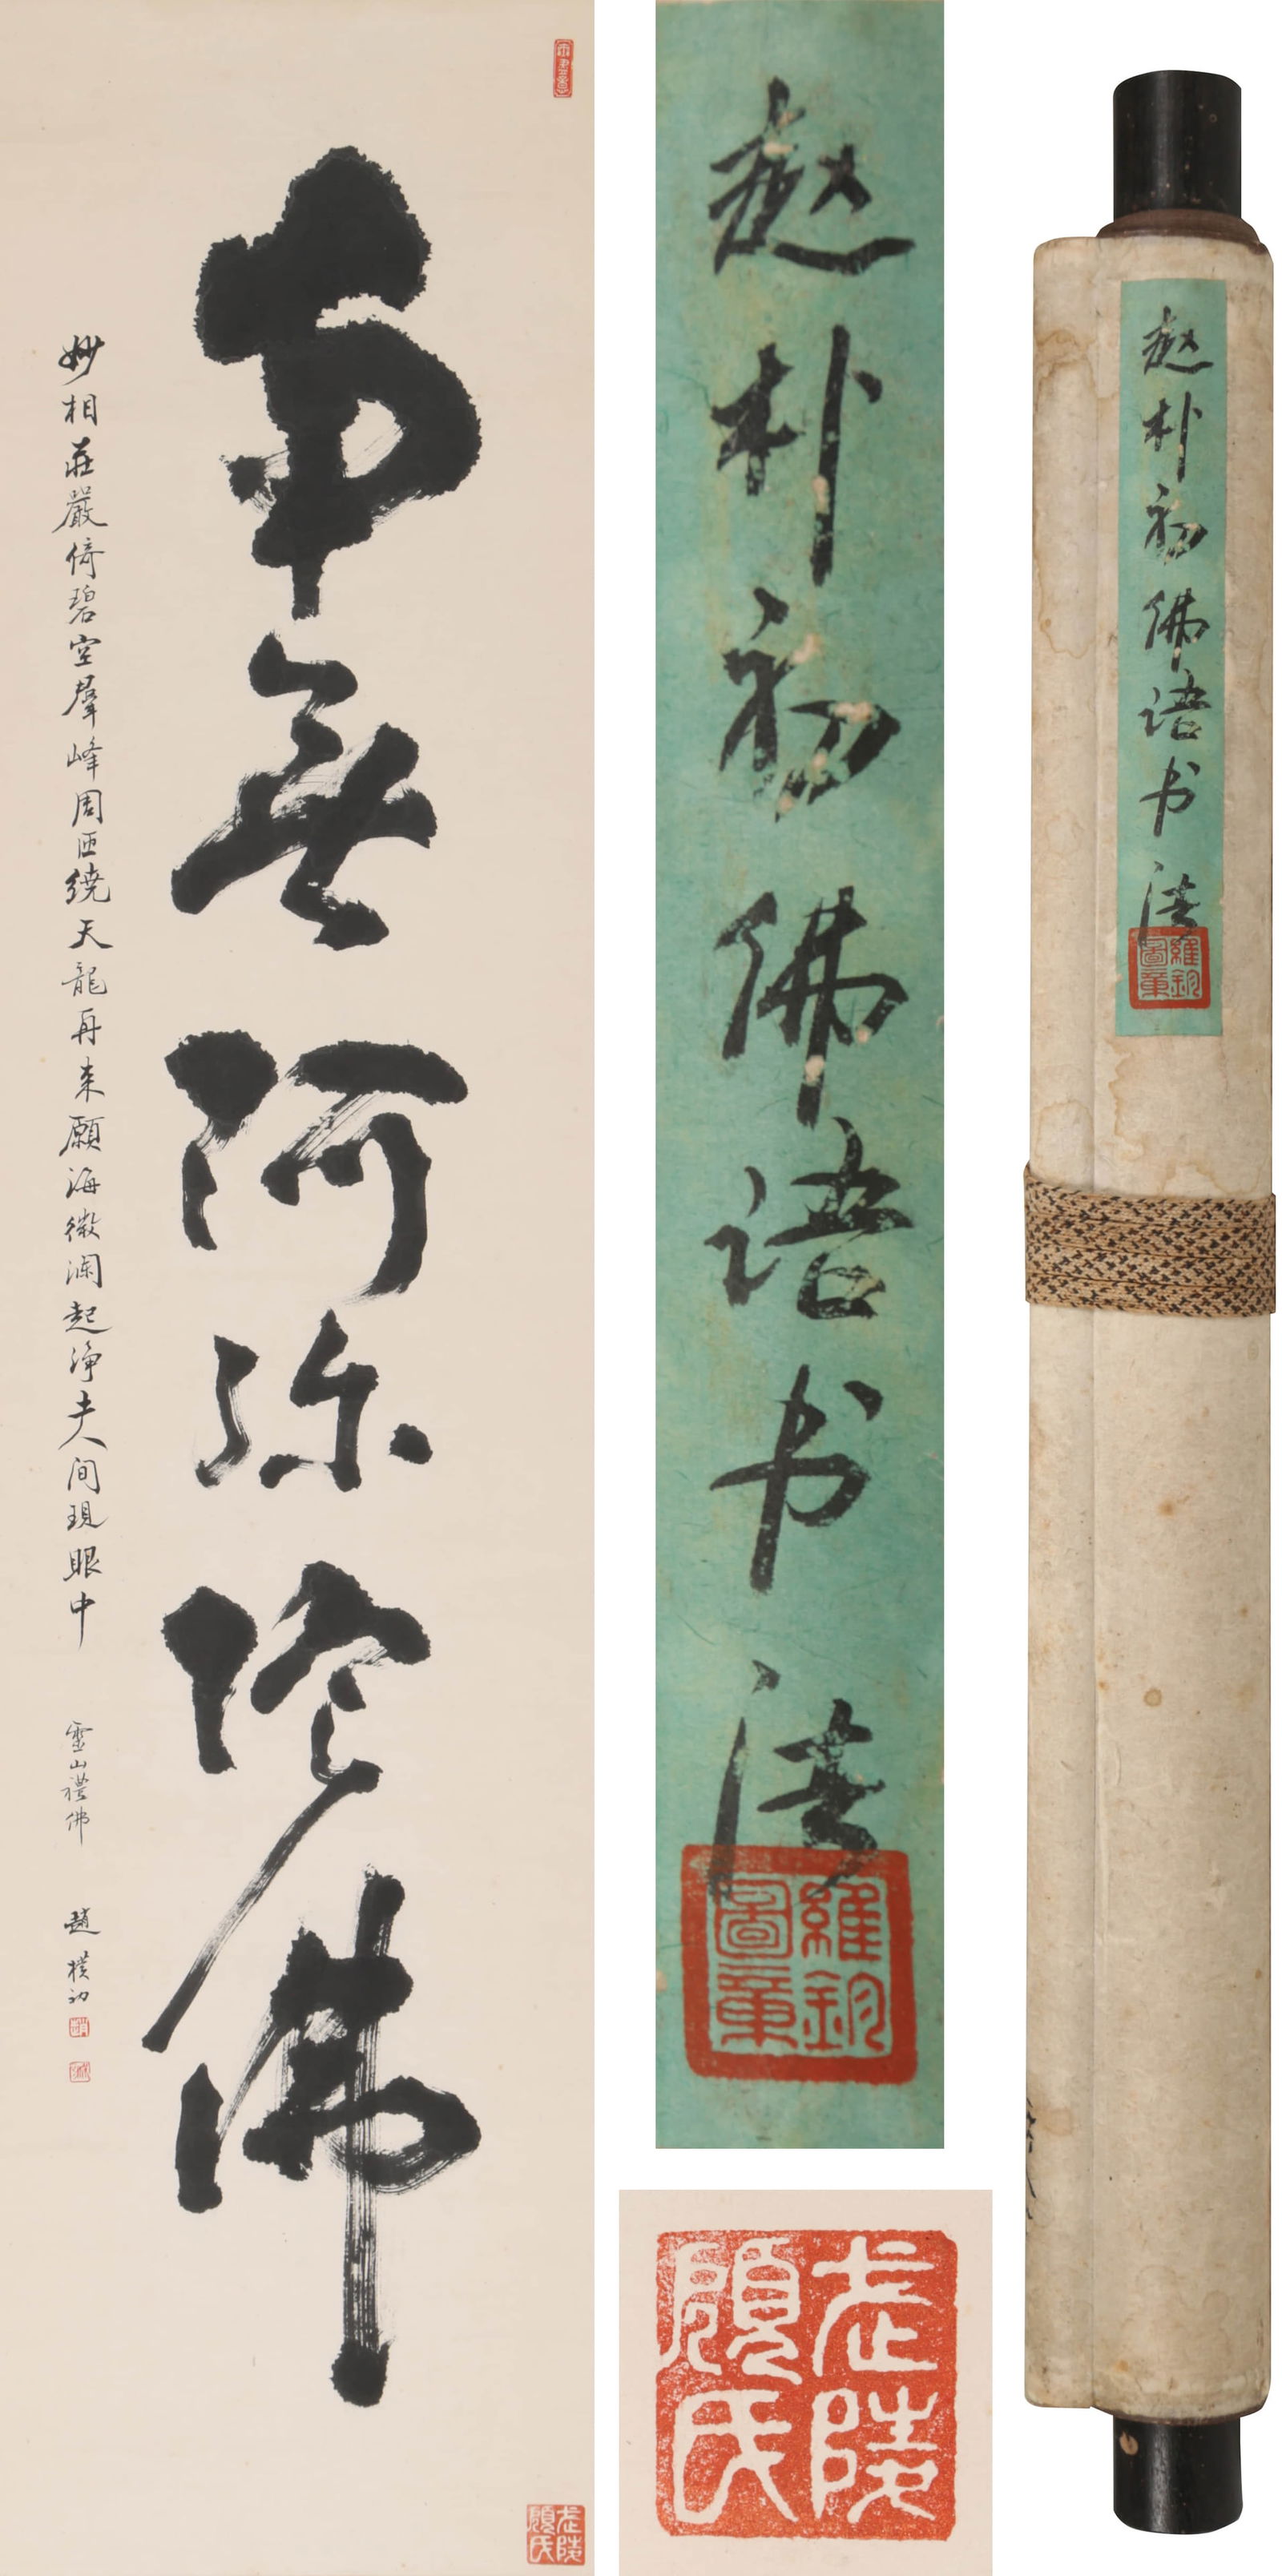 南無阿弥陀佛
妙相莊嚴倚碧空羣峰周匝繞天龍再来願海微瀾起淨土人間現眼中
靈山禮佛
趙樸初
武陵顧氏
赵朴初佛语书法
維鈞圖章
武陵顧氏
赵朴初佛语书法
維鈞圖章